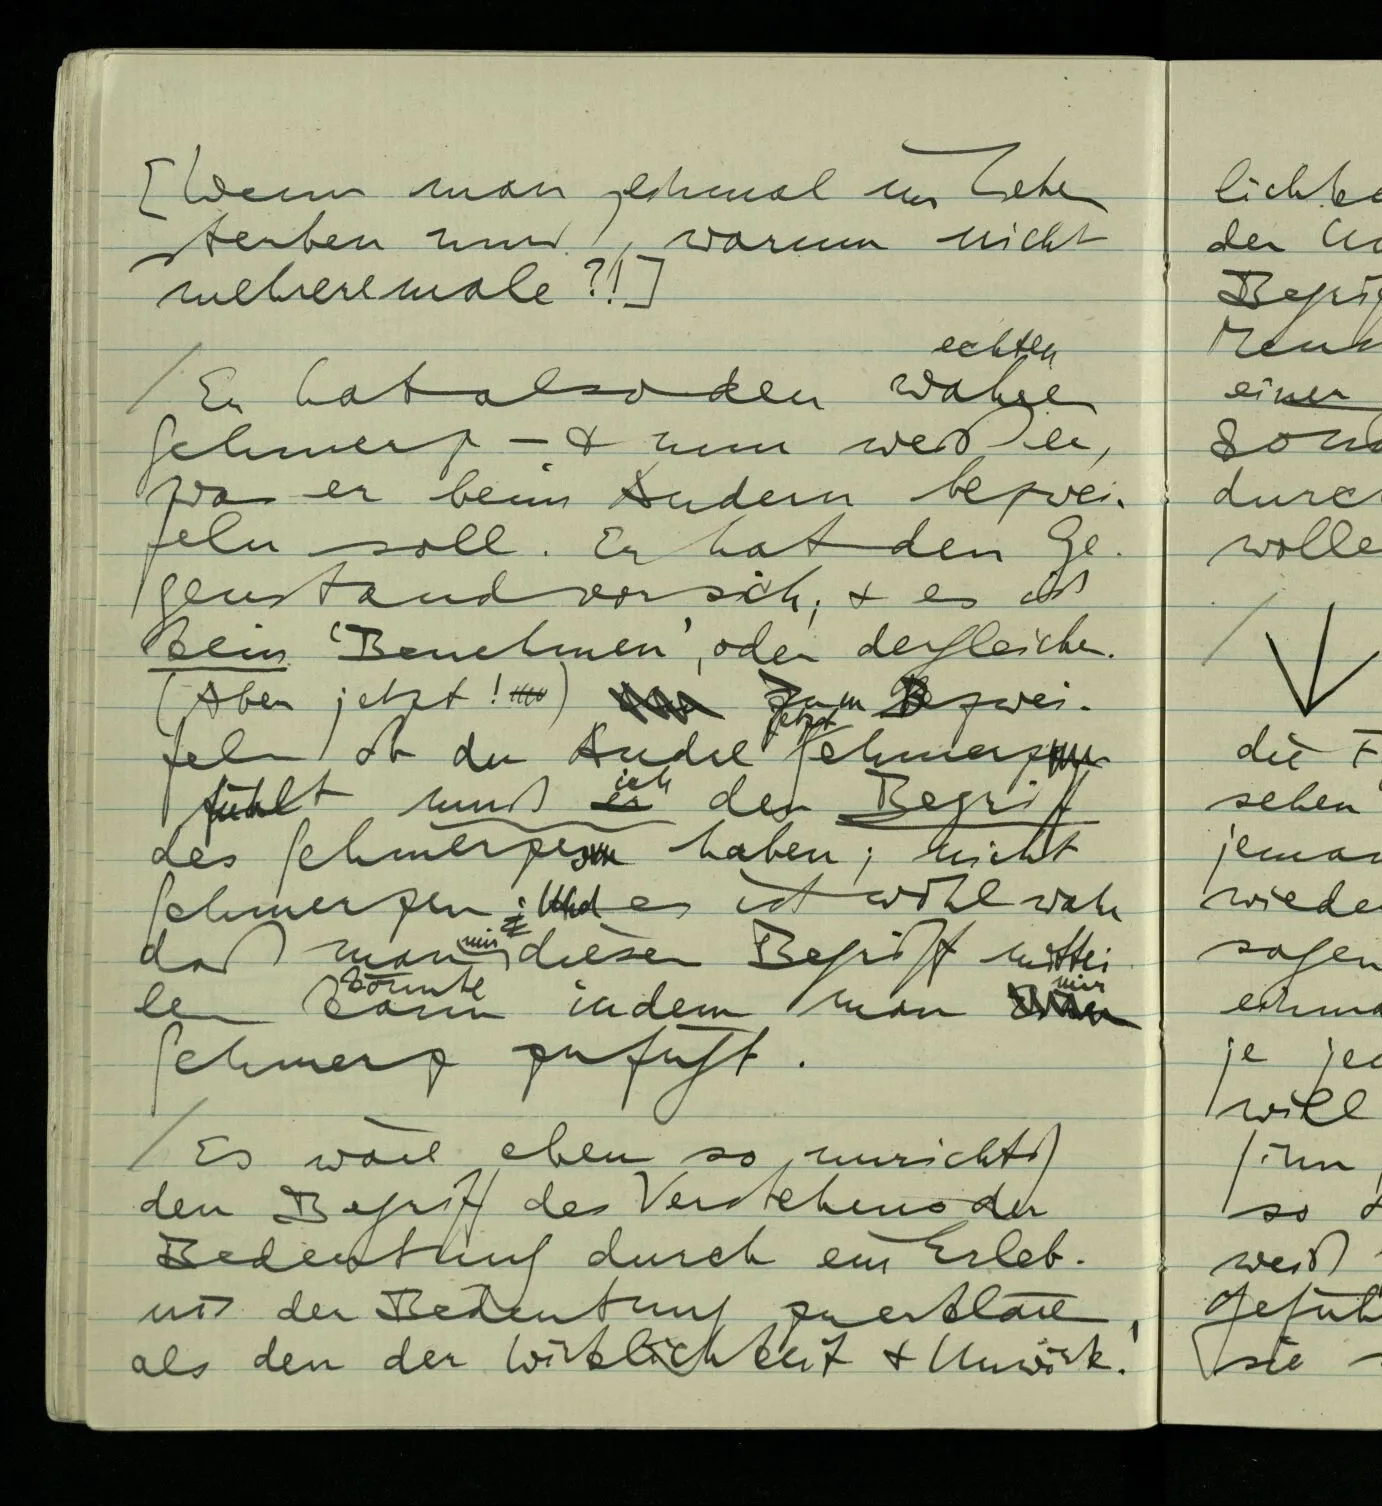 [Wenn man einmal im Leben
sterben muß, warum nicht
mehreremale?!]
echten
/ Er hat also den wahren
Schmerz – & nun weiß er,
was er beim Andern bezwei-
feln soll. Er hat den Ge-
genstand vor sich, & es ist
kein 'Benehmen', oder dergleichen.
(Aber jetzt!) Zum Bezwei-
feln ob der Andre Schmerz
jetzt
fühlt muß er den Begriff
ich
des Schmerzes haben; nicht
Schmerzen; Und es ist wohl wahr
daß man mir diesen Begriff mittei-
len kann indem man mir
könnte
Schmerz zufügt.
/ Es wäre eben so unrichtig
den Begriff des Verstehens der
Bedeutung durch ein Erleb-
nis der Bedeutung zu erklären,
als den der Wirklichkeit & Unwirk-
der
einer
durch
/
die
sehen
wieder
sagen
je
will
ihn
so
weiß
sie